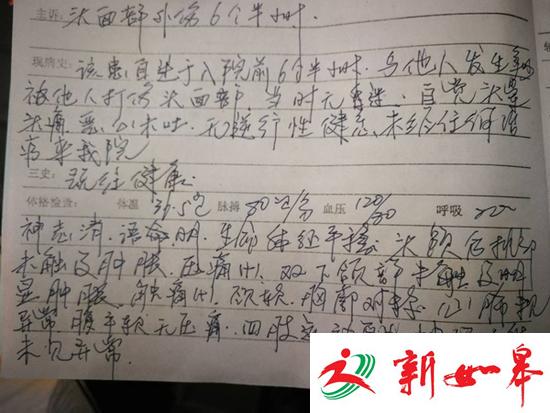 主诉: 头面部外伤6个半小时.
现病史: 该患自述于入院前6个半小时.与他人发生争
被他人打伤头面部.当时无昏迷.自觉头晕
头痛.恶心未吐.无逆行性健忘.未经任何治
来我院
三史: 既往健康.
体格检查: 体温 36.5℃ 脉搏 80次/分 血压 120/80 呼吸 20
神志清.语言明.生命体征平稳.头颅后枕部
未触及肿胀.压痛(+).双下颌部未触及明
显肿胀.触痛(+).颈软.胸部对称.心肺
异常.腹平软无压痛.四肢
未见异常.
新如皋